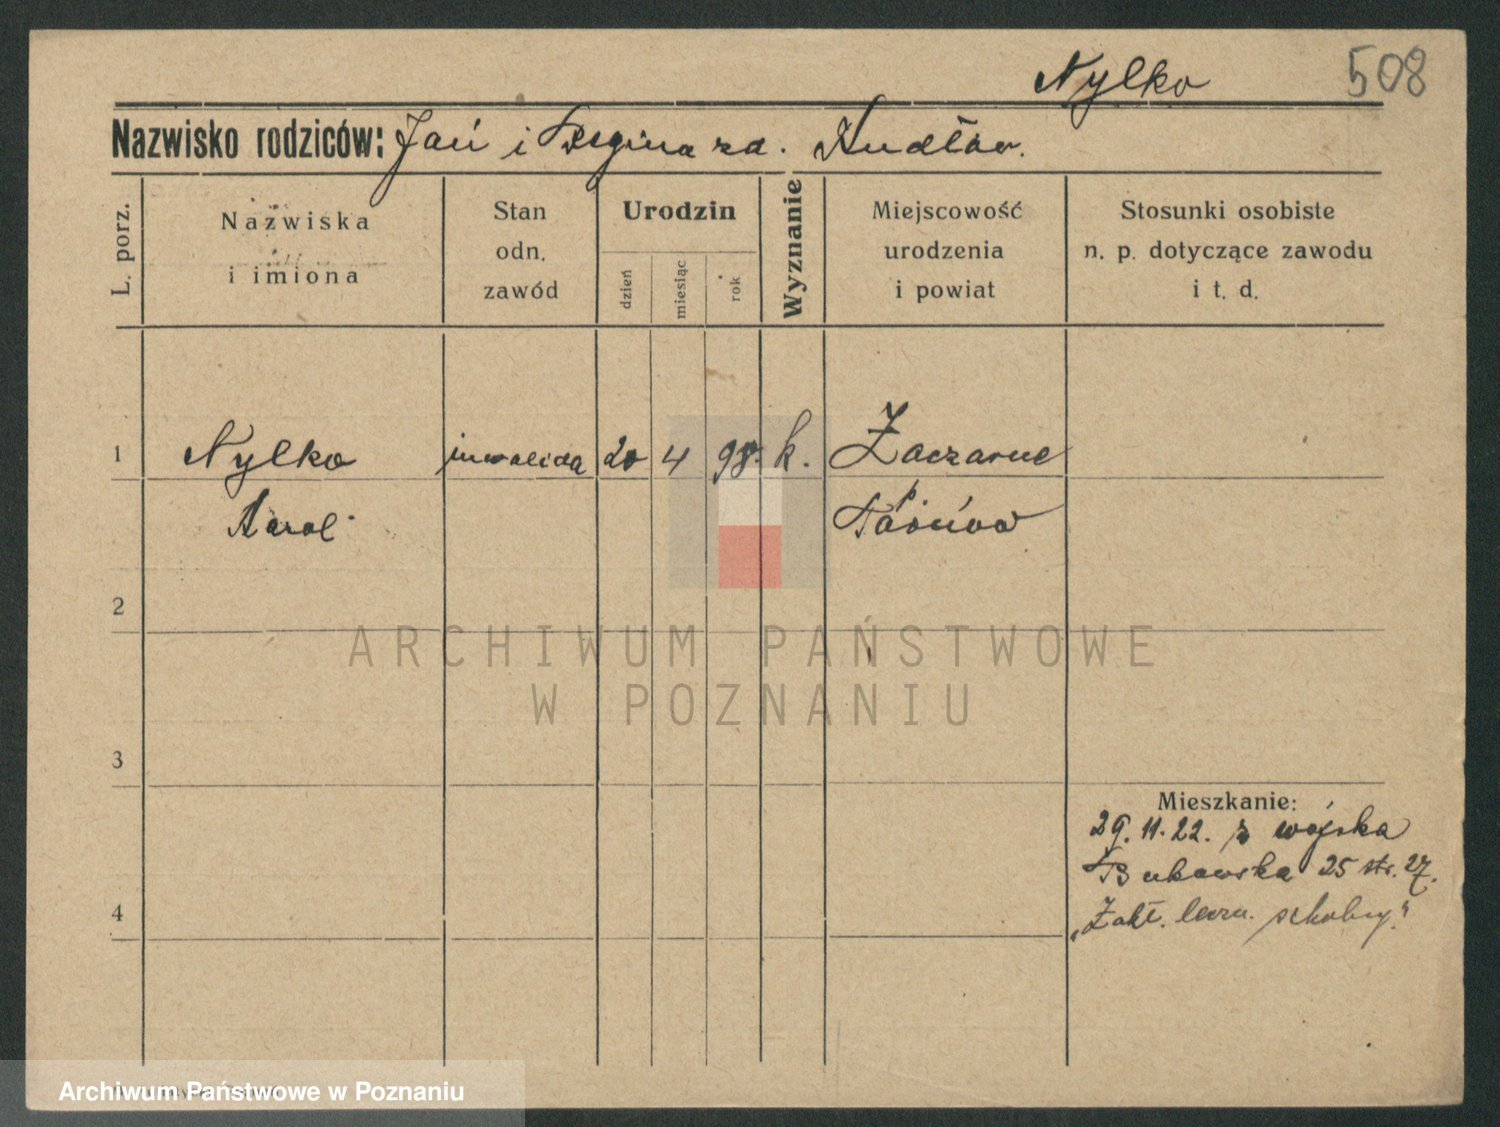 Nylko 508
Nazwisko rodziców: Jan i Regina zd. Kudław.
L. porz.
Nazwiska
i imiona
Stan
odn.
zawód
Urodzin
dzień
miesiąc
rok
Wyznanie
Miejscowość
urodzenia
i powiat
Stosunki osobiste
n. p. dotyczące zawodu
i t. d.
1 Nylko inwalida 20 4 98. k. Zaczarnie
Karol p. Tarnów
2
3
Mieszkanie:
29.11.22. z wojska
Bukowska 25 str. 27.
4 „Zakł. leczn. szkolny."
ARCHIWUM PAŃSTWOWE
W POZNANIU
Archiwum Państwowe w Poznaniu